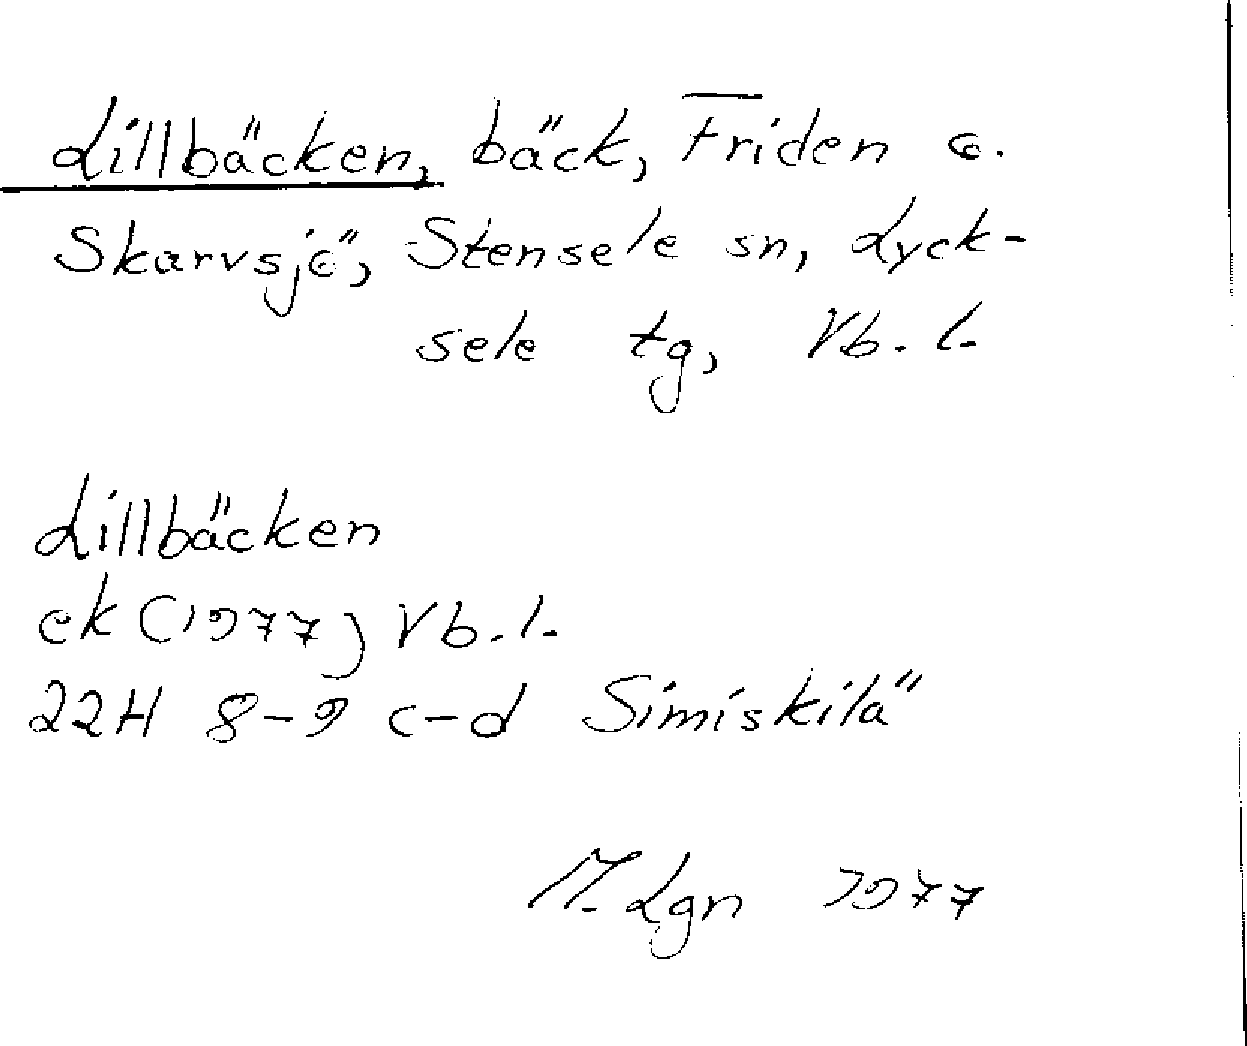 Lillbäcken, bäck, Friden o.
Skarvsjö, Stensele sn, Lyck-
sele tg, Vb. l.
Lillbäcken
ek (1977) Vb. l.
22H 8-9 c-d Simiskilä
M. Lgn 1977